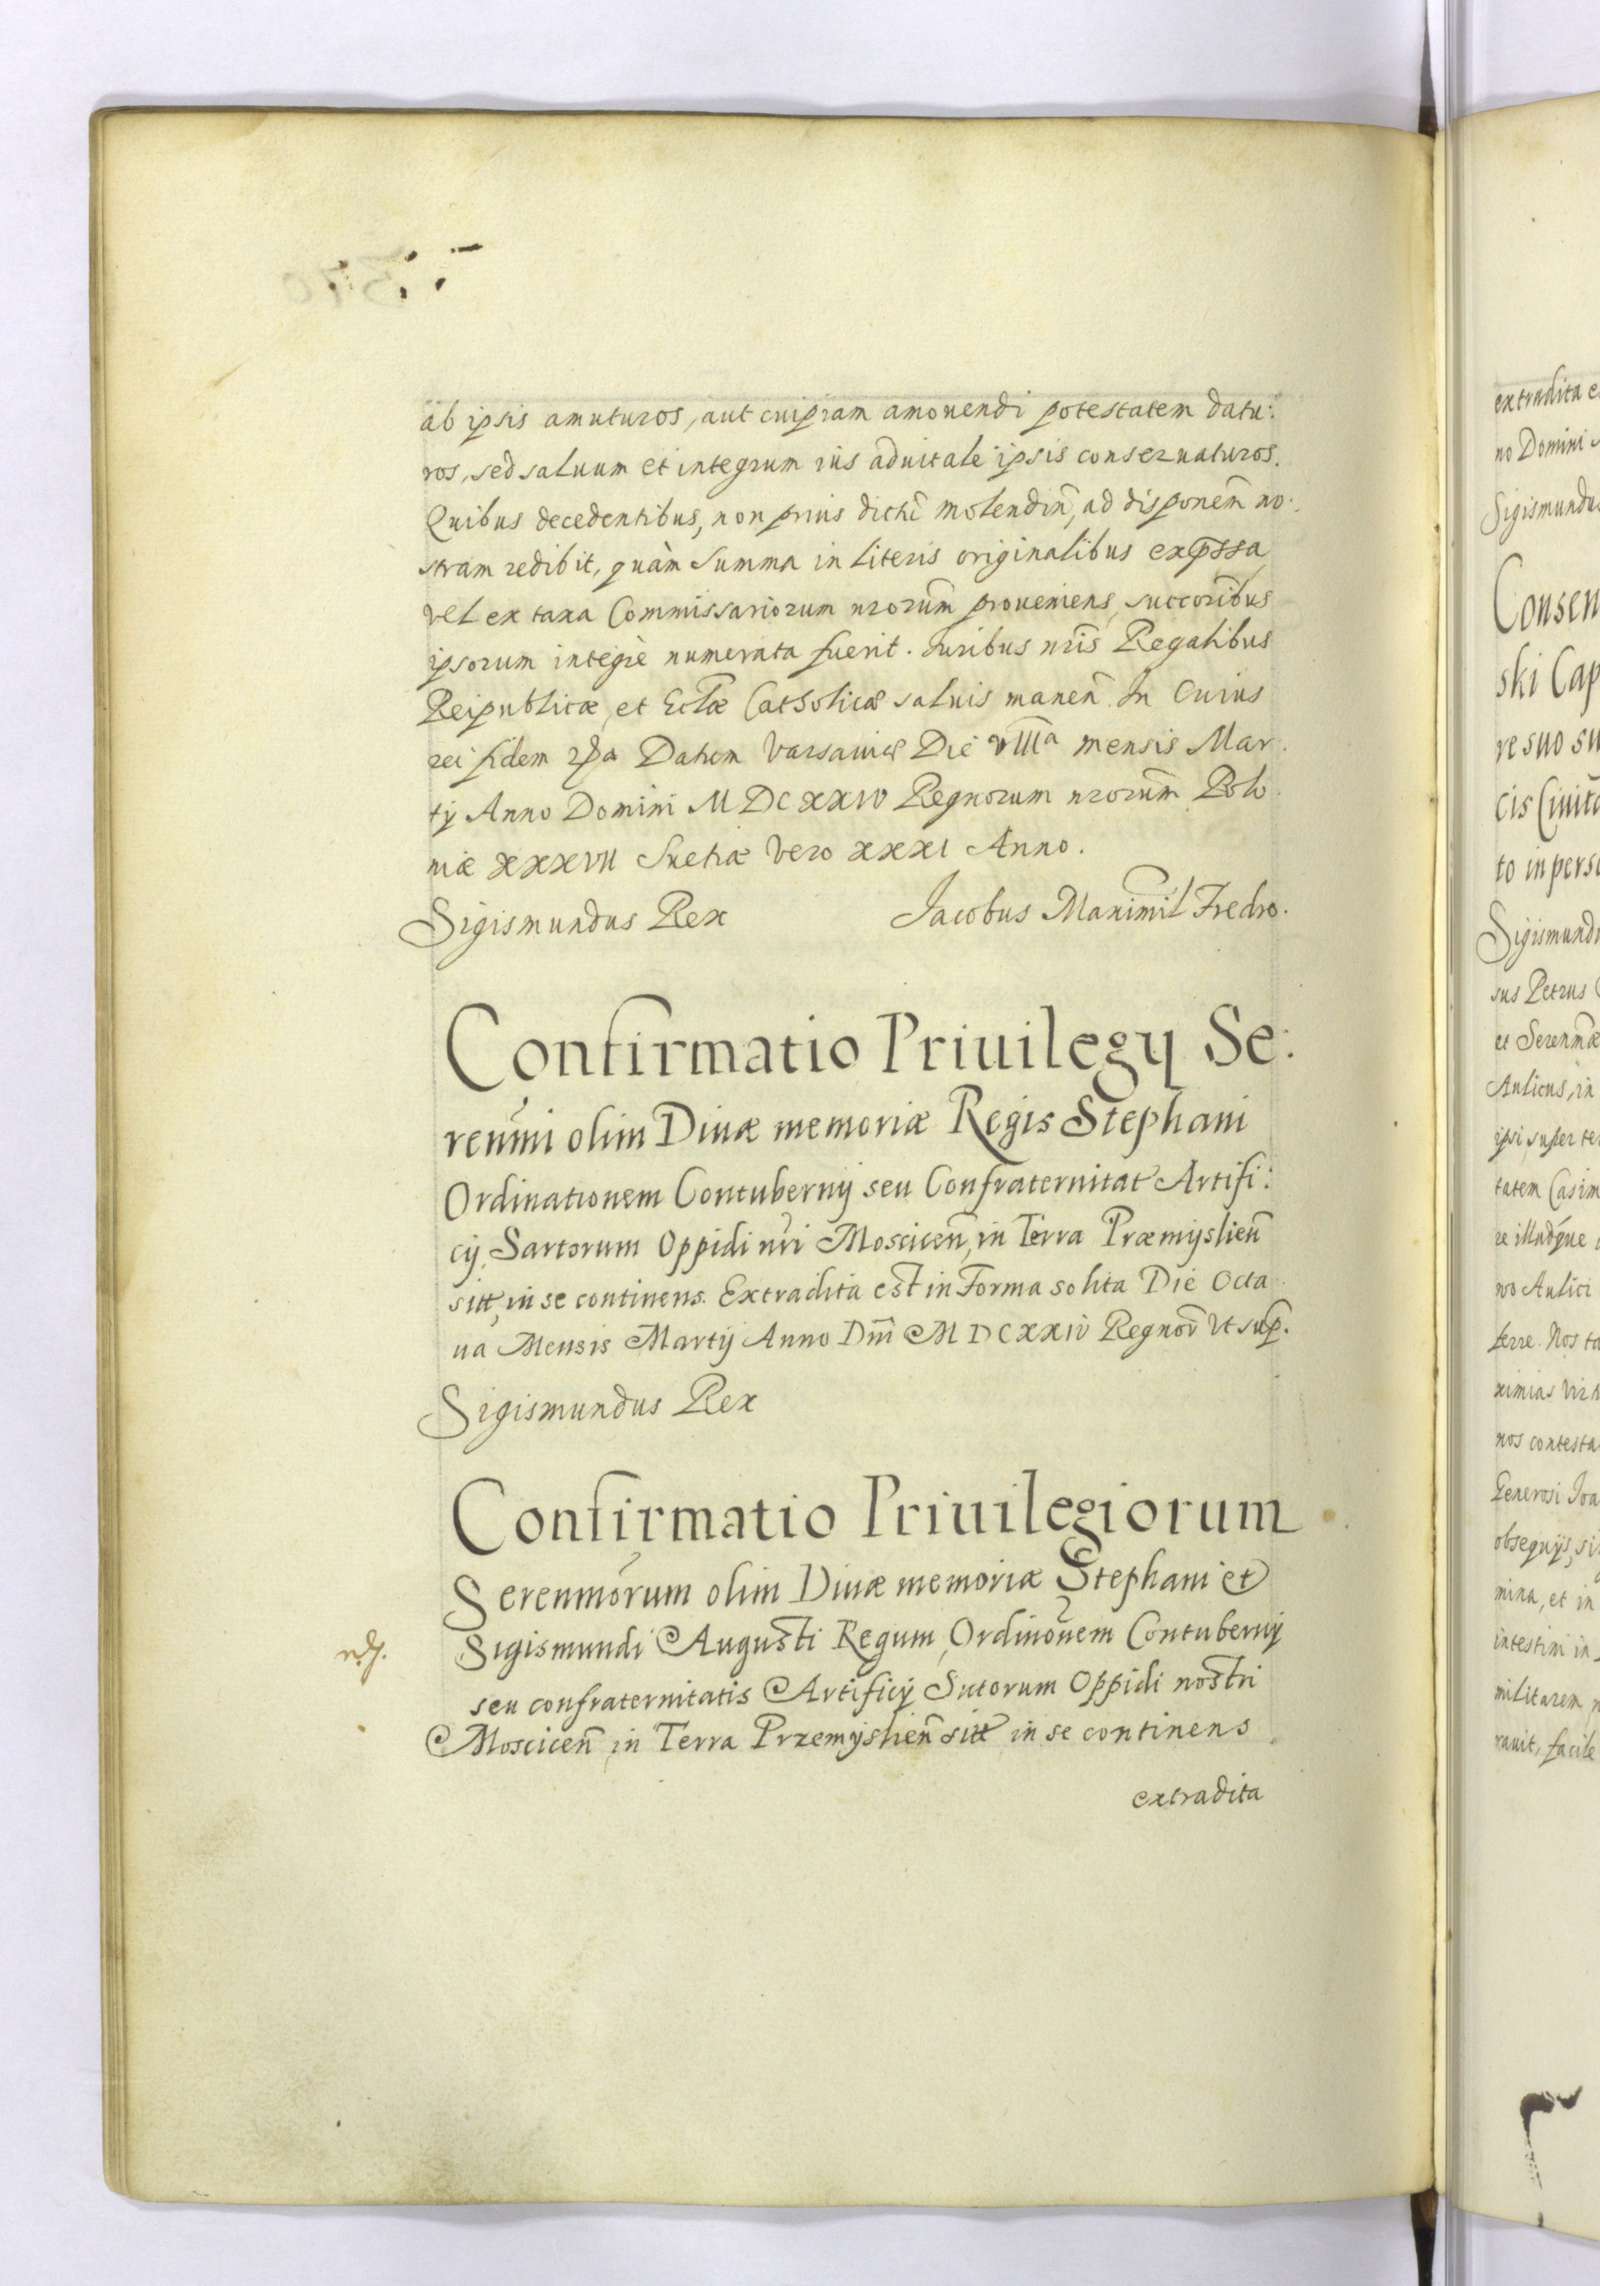 ab ipsis amuturos, aut cuipiam amouendi potestatem datu:
ros, sed saluum et integrum ius aduitale ipsis conseruaturos.
Quibus decedentibus, non prius dictū molendin̄, ad disponem̄ no:
stram redibit, quàm summa in literis originalibus exp̄ssa
vel ex taxa Commissariorum nrorum̄ proueniens, succorībus
ipsorum integrè numerata fuerit. Iuribus nrīs Regalibus
Reipublicæ, et Eclǣ Catholicæ saluis manen̄. In Cuius
rei fidem Datum Varsauiæ Die VIIIa mensis Mar:
tij Anno Domini MDCXXIV Regnorum nrorum̄ Polo
niæ XXXVII Suetiæ Vero XXXI Anno.
Sigismundus Rex Jacobus Maximil̄ Fredro.
Confirmatio Priuilegij Se:
renmī olim Diuæ memoriæ Regis Stephani
Ordinationem Contubernij seu Confraternitat Artifi:
cij Sartorum Oppidi nrī Moscicen̄, in Terra Præmyslien̄
sitt, in se continens. Extradita est in Forma solita Die Octa
ua Mensis Martij Anno Dnī MDCXXIV Regnor̄ Vt sup̄.
Sigismundus Rex
Confirmatio Priuilegiorum
Serenmōrum olim Diuæ memoriæ Stephani et
Sigismundi Augusti Regum, Ordinōnem Contubernij
seu confraternitatis Artificij Sutorum Oppidi nostri
Moscicen̄ in Terra Przemyslien̄ sitt in se continens
extradita
extradita e
no Domini
Sigismundu
Consen
ski Cap
re suo su
cis Ciuita
to in pers
Sigismundu
sus Petrus
et Serenmǣ
Aulicus, in
ipsi super te
tatem Casim
re illudque
no Aulici
ferre. Nos ta
ximias Virt
nos contesta
Generosi Joa
obsequijs, si
mina, et in
intestini in
militarem
rauit, facile